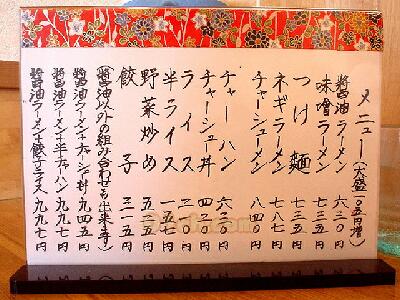 メニュー(大盛一〇五円増)
醤油ラーメン 六三〇円
味噌ラーメン 七三五円
つけ麺 七三五円
ネギラーメン 七八七円
チャーシューメン 八四〇円
チャーハン 六三〇円
チャーシュー丼 四二〇円
ライス 二一〇円
半ライス 一五七円
野菜炒め 五二五円
餃子 三一五円
(醤油以外の組み合わせも出来ます)
醤油ラーメン+チャーシュー丼 九四五円
醤油ラーメン+半チャーハン 九九七円
醤油ラーメン+餃子+ライス 九九七円